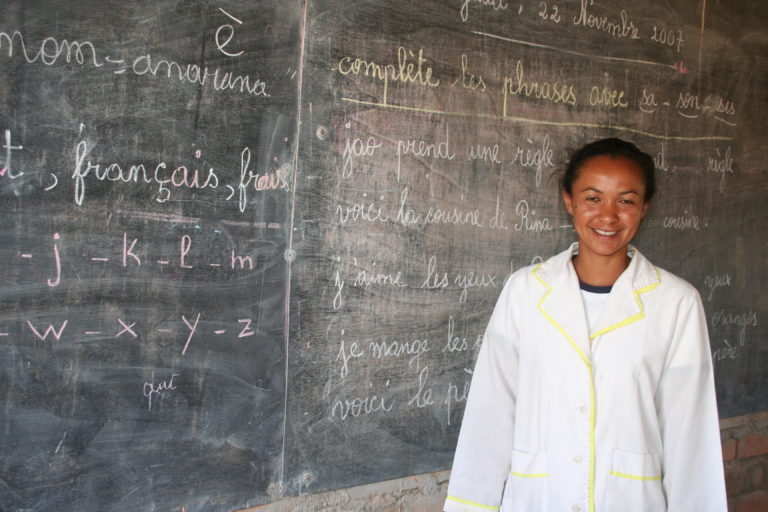 è
nom = anarana
, français, frais
- j - k - l - m
- w - x - y - z
qui
, 22 Novembre 2007
complète les phrases avec sa - son - ses
jao prend une règle règle
voici la cousine de Rina - cousine.
j'aime les yeux yeux
je mange les oranges
voici le